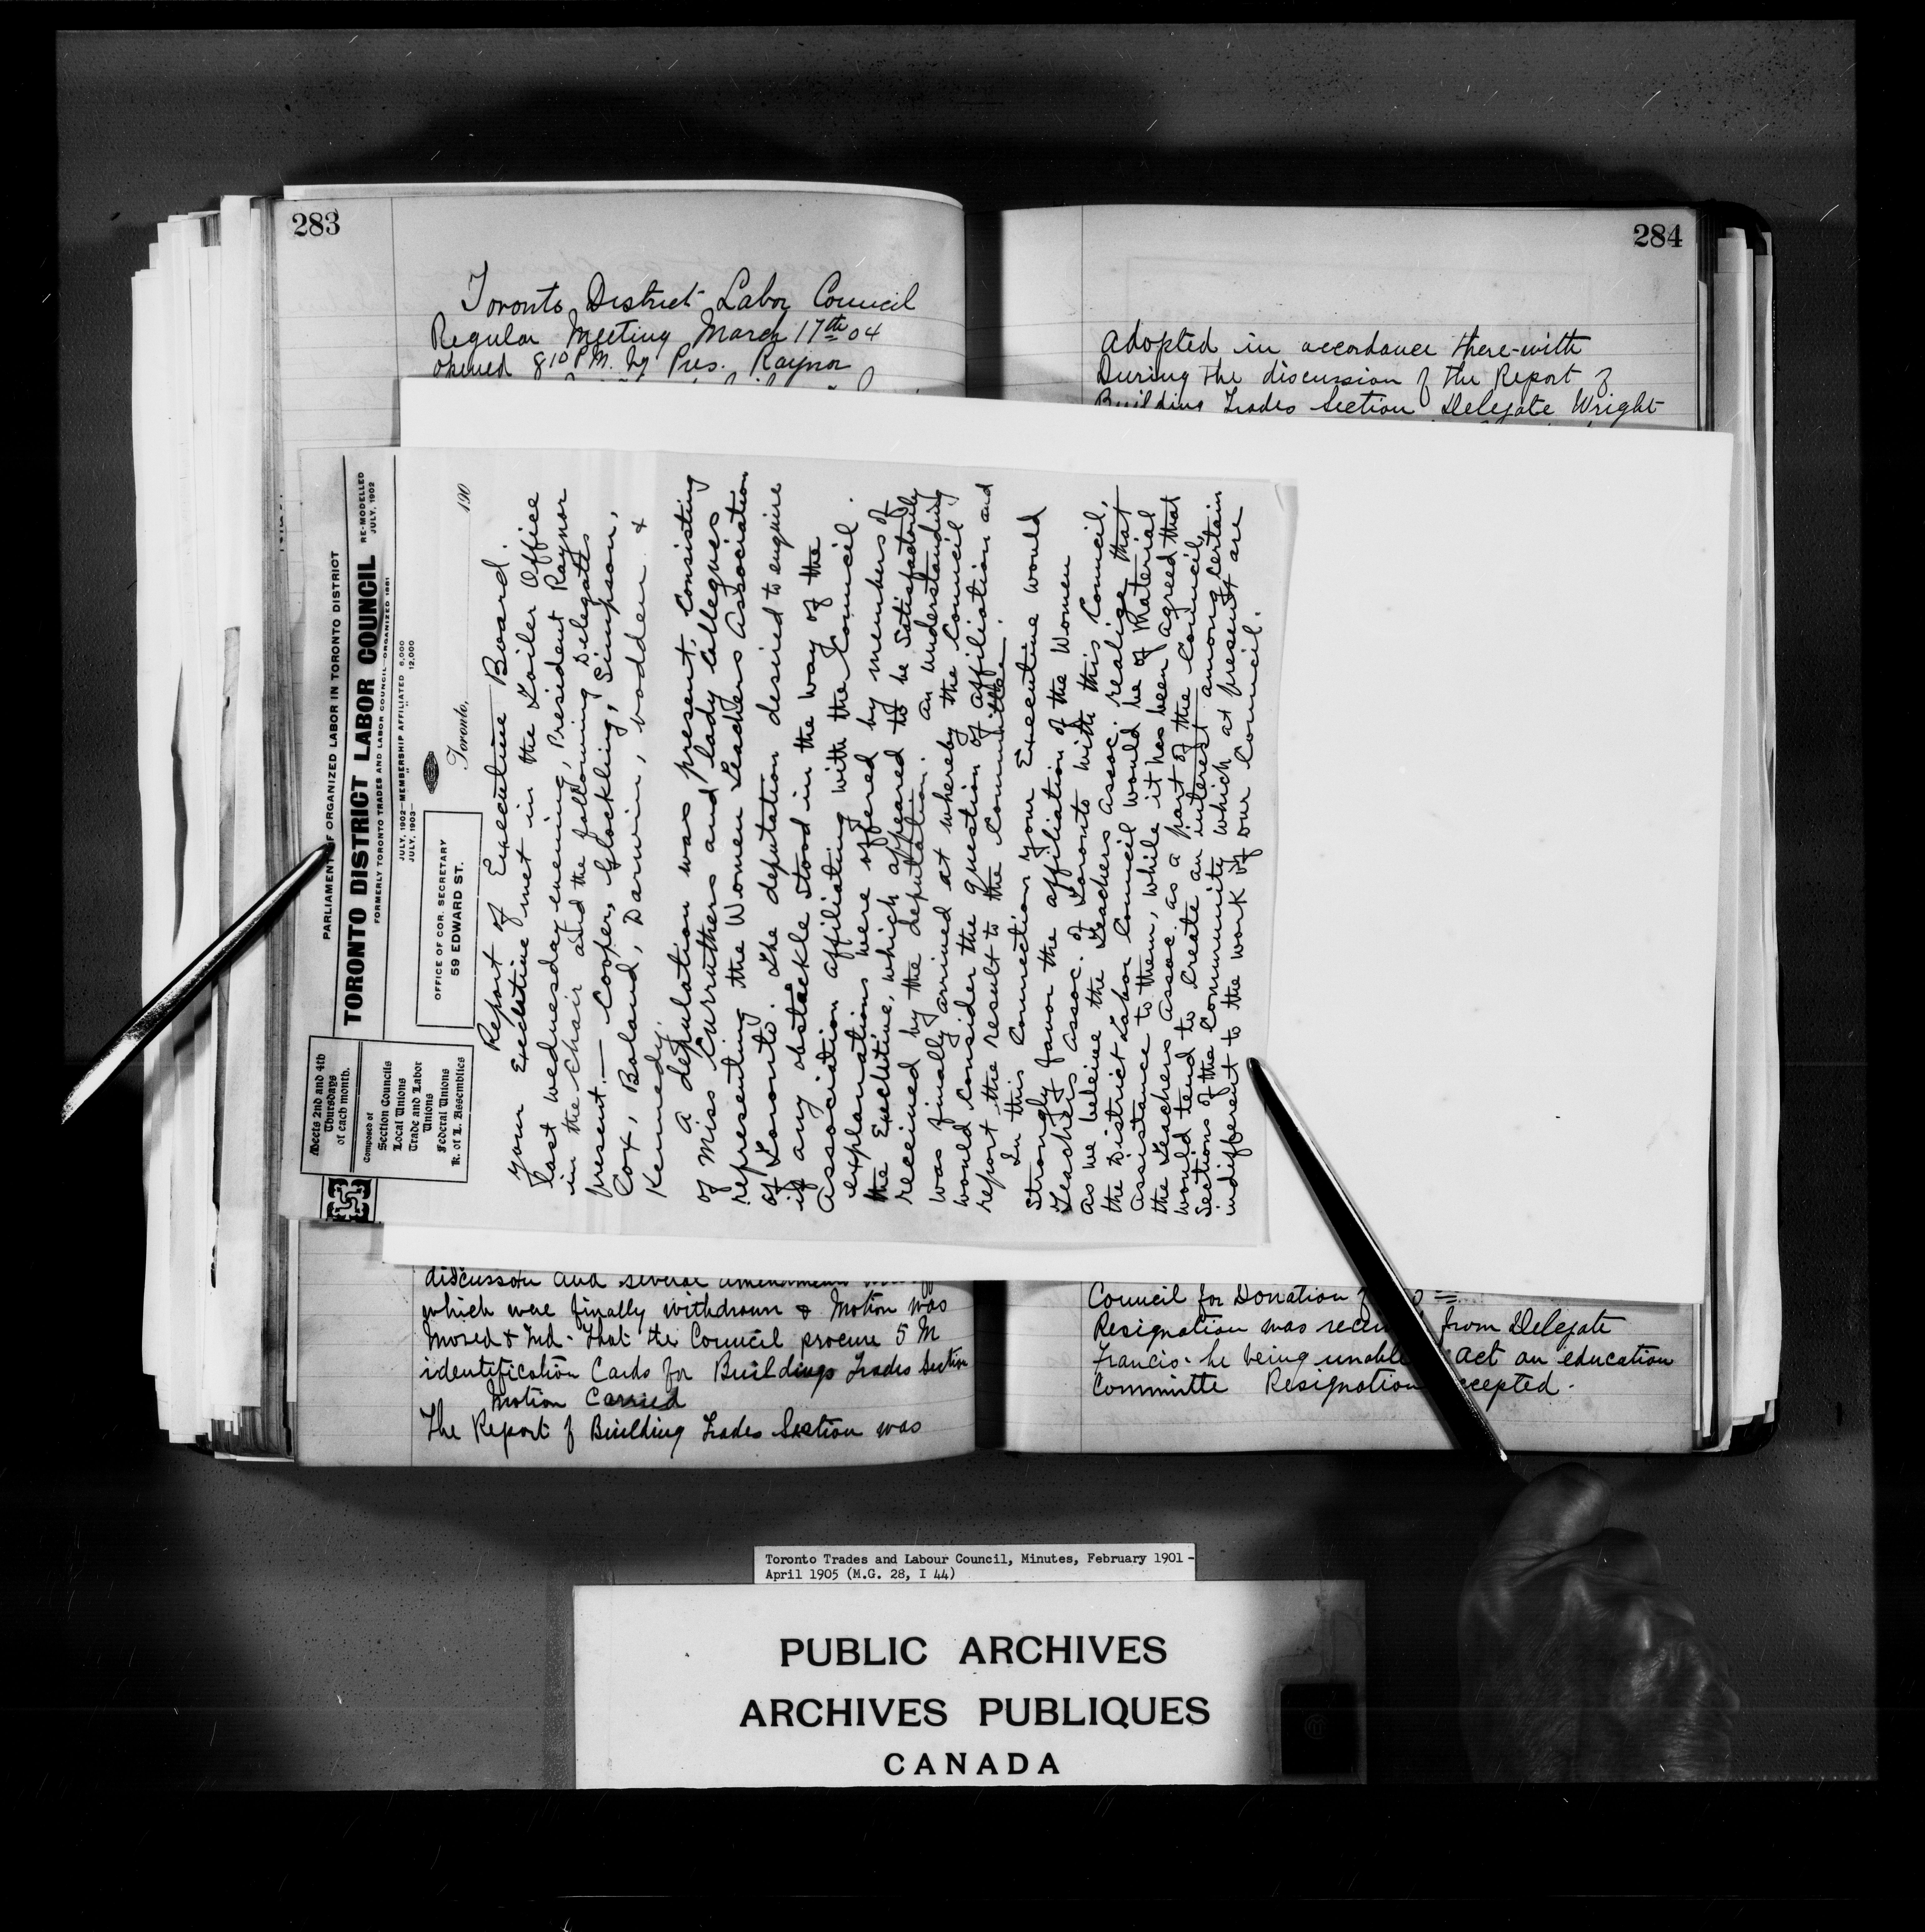 283
Toronto District Labor Council
Regular Meeting March 17th 04
opened 8 10 P.M. by Pres. Raynor
PARLIAMENT OF ORGANIZED LABOR IN TORONTO DISTRICT
TORONTO DISTRICT LABOR COUNCIL
RE-MODELLED
JULY, 1902
FORMERLY TORONTO TRADES AND LABOR COUNCIL—ORGANIZED 1881
JULY, 1902—MEMBERSHIP AFFILIATED 6,000
JULY, 1903— " " 12,000
Meets 2nd and 4th
Thursdays
of each month.
Composed of
Section Councils
Local Unions
Trade and Labor
Unions
Federal Unions
K. of L. Assemblies
OFFICE OF COR. SECRETARY
59 EDWARD ST.
Toronto, 190
Report of Executive Board.
Your Executive met in the Toiler Office
last wednesday evening, President Raynor
in the chair and the following Delegates
present.— Cooper, Glockling, Simpson,
Cox, Boland, Darwin, vodden &
Kennedy.
A deputation was present, consisting
of Miss Carruthers and lady collegues
representing the Women Teachers Association
of Toronto. The deputation desired to enquire
if any obstackle stood in the way of the
Association affiliating with the Council.
explanations were offered by members of
the Executive, which appeared to be Satisfactorily
received by the deputation. An understanding
was finally arrived at whereby the Council
would consider the question of affiliation and
report the result to the Committee.
In this Connection your Executive would
Strongly favor the affiliation of the Women
Teachers Assoc. of Toronto with this Council,
as we believe the Teachers Assoc. realize that
the District Labor Council would be of Material
assistance to them, while it has been agreed that
the Teachers Assoc. as a part of the Council,
would tend to Create an interest among certain
Sections of the Community which at present are
indifferent to the work of our Council.
discusson and several amendments
which were finally withdrawn & Motion was
Moved & 2nd - that the Council procure 5 M
identification Cards for Buildings Trades Section
Motion Carried
The Report of Building Trades Section was
284
adopted in accordance there-with
During the discussion of the Report of
Building Trades Section Delegate Wright
Council for Donation
Resignation was from Delegate
Francis. he being unable act on education
Committe Resignation
Toronto Trades and Labour Council, Minutes, February 1901 -
April 1905 (M.G. 28, I 44)
PUBLIC ARCHIVES
ARCHIVES PUBLIQUES
CANADA